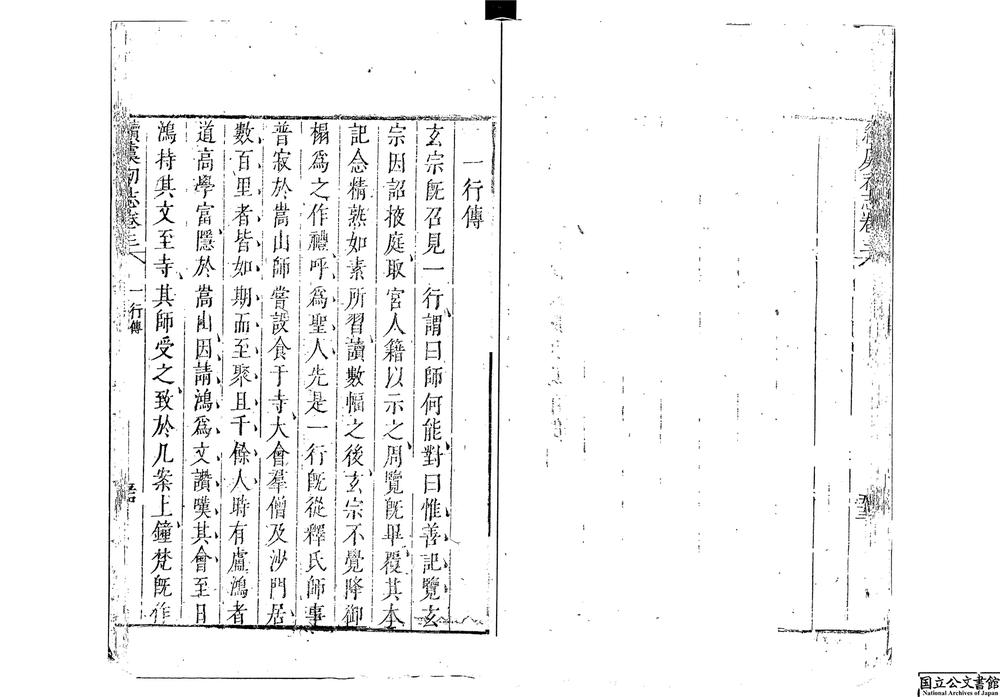 一行傳
玄宗既召見一行謂曰師何能對曰惟善記覽玄
宗因詔掖庭取宮人籍以示之周覽既畢覆其本
記念精熟如素所習讀數幅之後玄宗不覺降御
榻爲之作禮呼爲聖人先是一行既從釋氏師事
普寂於嵩山師嘗設食于寺大會羣僧及沙門居
數百里者皆如期而至聚且千餘人時有盧鴻者
道高學富隱於嵩山因請鴻爲文讚嘆其會至日
鴻持其文至寺其師受之致於几案上鐘梵既作
續虞初志卷三
一行傳
国立公文書館
National Archives of Japan